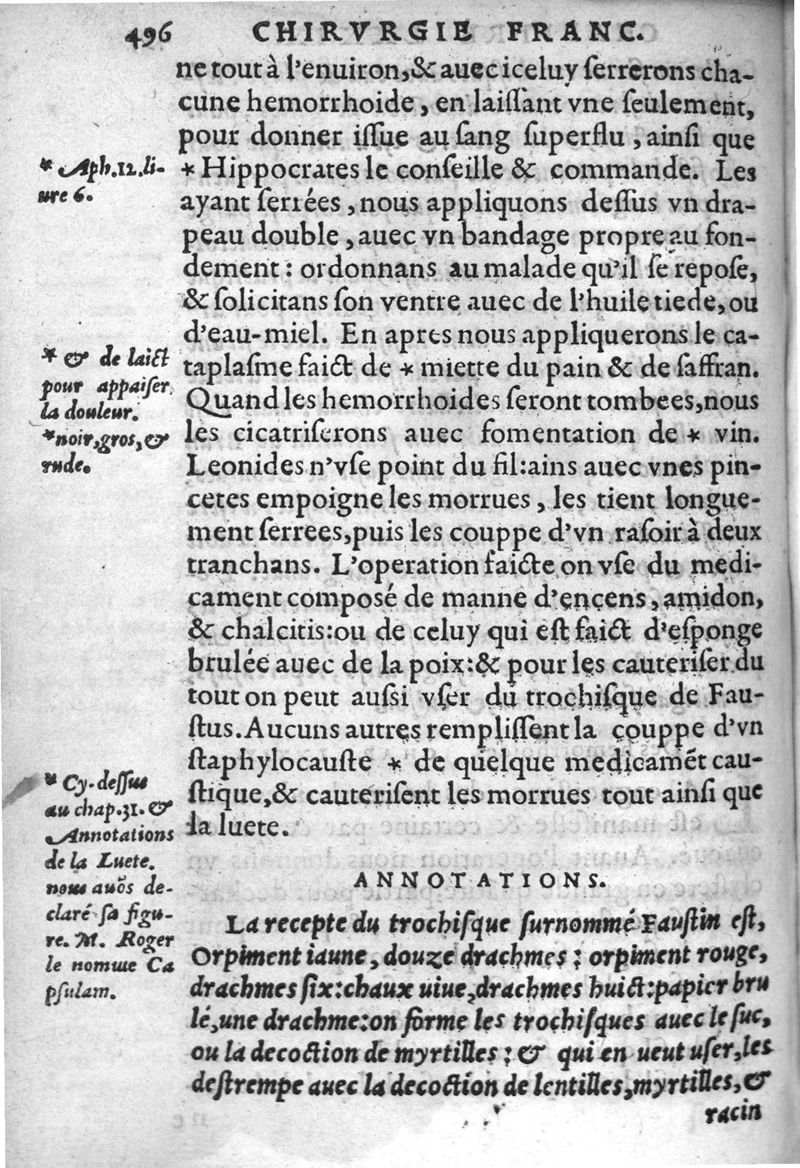 496 CHIRVRGIE FRANC.
ne tout à l'enuiron,& auec iceluy ſerrerons cha-
cune hemorrhoide, en laiſſant vne ſeulement,
pour donner iſſue au ſang ſuperflu, ainſi que
* Hippocrates le conſeille & commande. Les
ayant ſerrées, nous appliquons deſſus vn dra-
peau double, auec vn bandage propre au fon-
dement: ordonnans au malade qu'il ſe repoſe,
& ſolicitans ſon ventre auec de l'huile tiede, ou
d'eau-miel. En apres nous appliquerons le ca-
taplaſme faict de * miette du pain & de ſaffran.
Quand les hemorrhoides ſeront tombees, nous
les cicatriſerons auec fomentation de * vin.
Leonides n'vſe point du fil:ains auec vnes pin-
cetes empoigne les morrues, les tient longue-
ment ſerrees, puis les couppe d'vn raſoir à deux
tranchans. L'operation faicte on vſe du medi-
cament compoſé de manne d'encens, amidon,
& chalcitis:ou de celuy qui eſt faict d'eſponge
brulée auec de la poix:& pour les cauteriſer du
tout on peut auſsi vſer du trochiſque de Fau-
ſtus. Aucuns autres rempliſſent la couppe d'vn
ſtaphylocauſte * de quelque medicamēt cau-
ſtique,& cauteriſent les morrues tout ainſi que
la luete.
* Aph.12.li-
ure 6.
* & de laict
pour appaiſer
la douleur.
*noir,gros,&
rude.
* Cy-deſſus
au chap.31.&
Annotations
de la Luete.
nous auōs de-
claré ſa figu-
re. M. Roger
le nomme Ca
pſulam.
ANNOTATIONS.
La recepte du trochiſque ſurnommé Fauſtin eſt,
Orpiment iaune, douze drachmes: orpiment rouge,
drachmes ſix:chaux uiue,drachmes huict:papier bru
lé,une drachme:on forme les trochiſques auec le ſuc,
ou la decoction de myrtilles: & qui en ueut uſer,les
deſtrempe auec la decoction de lentilles,myrtilles,&
racin